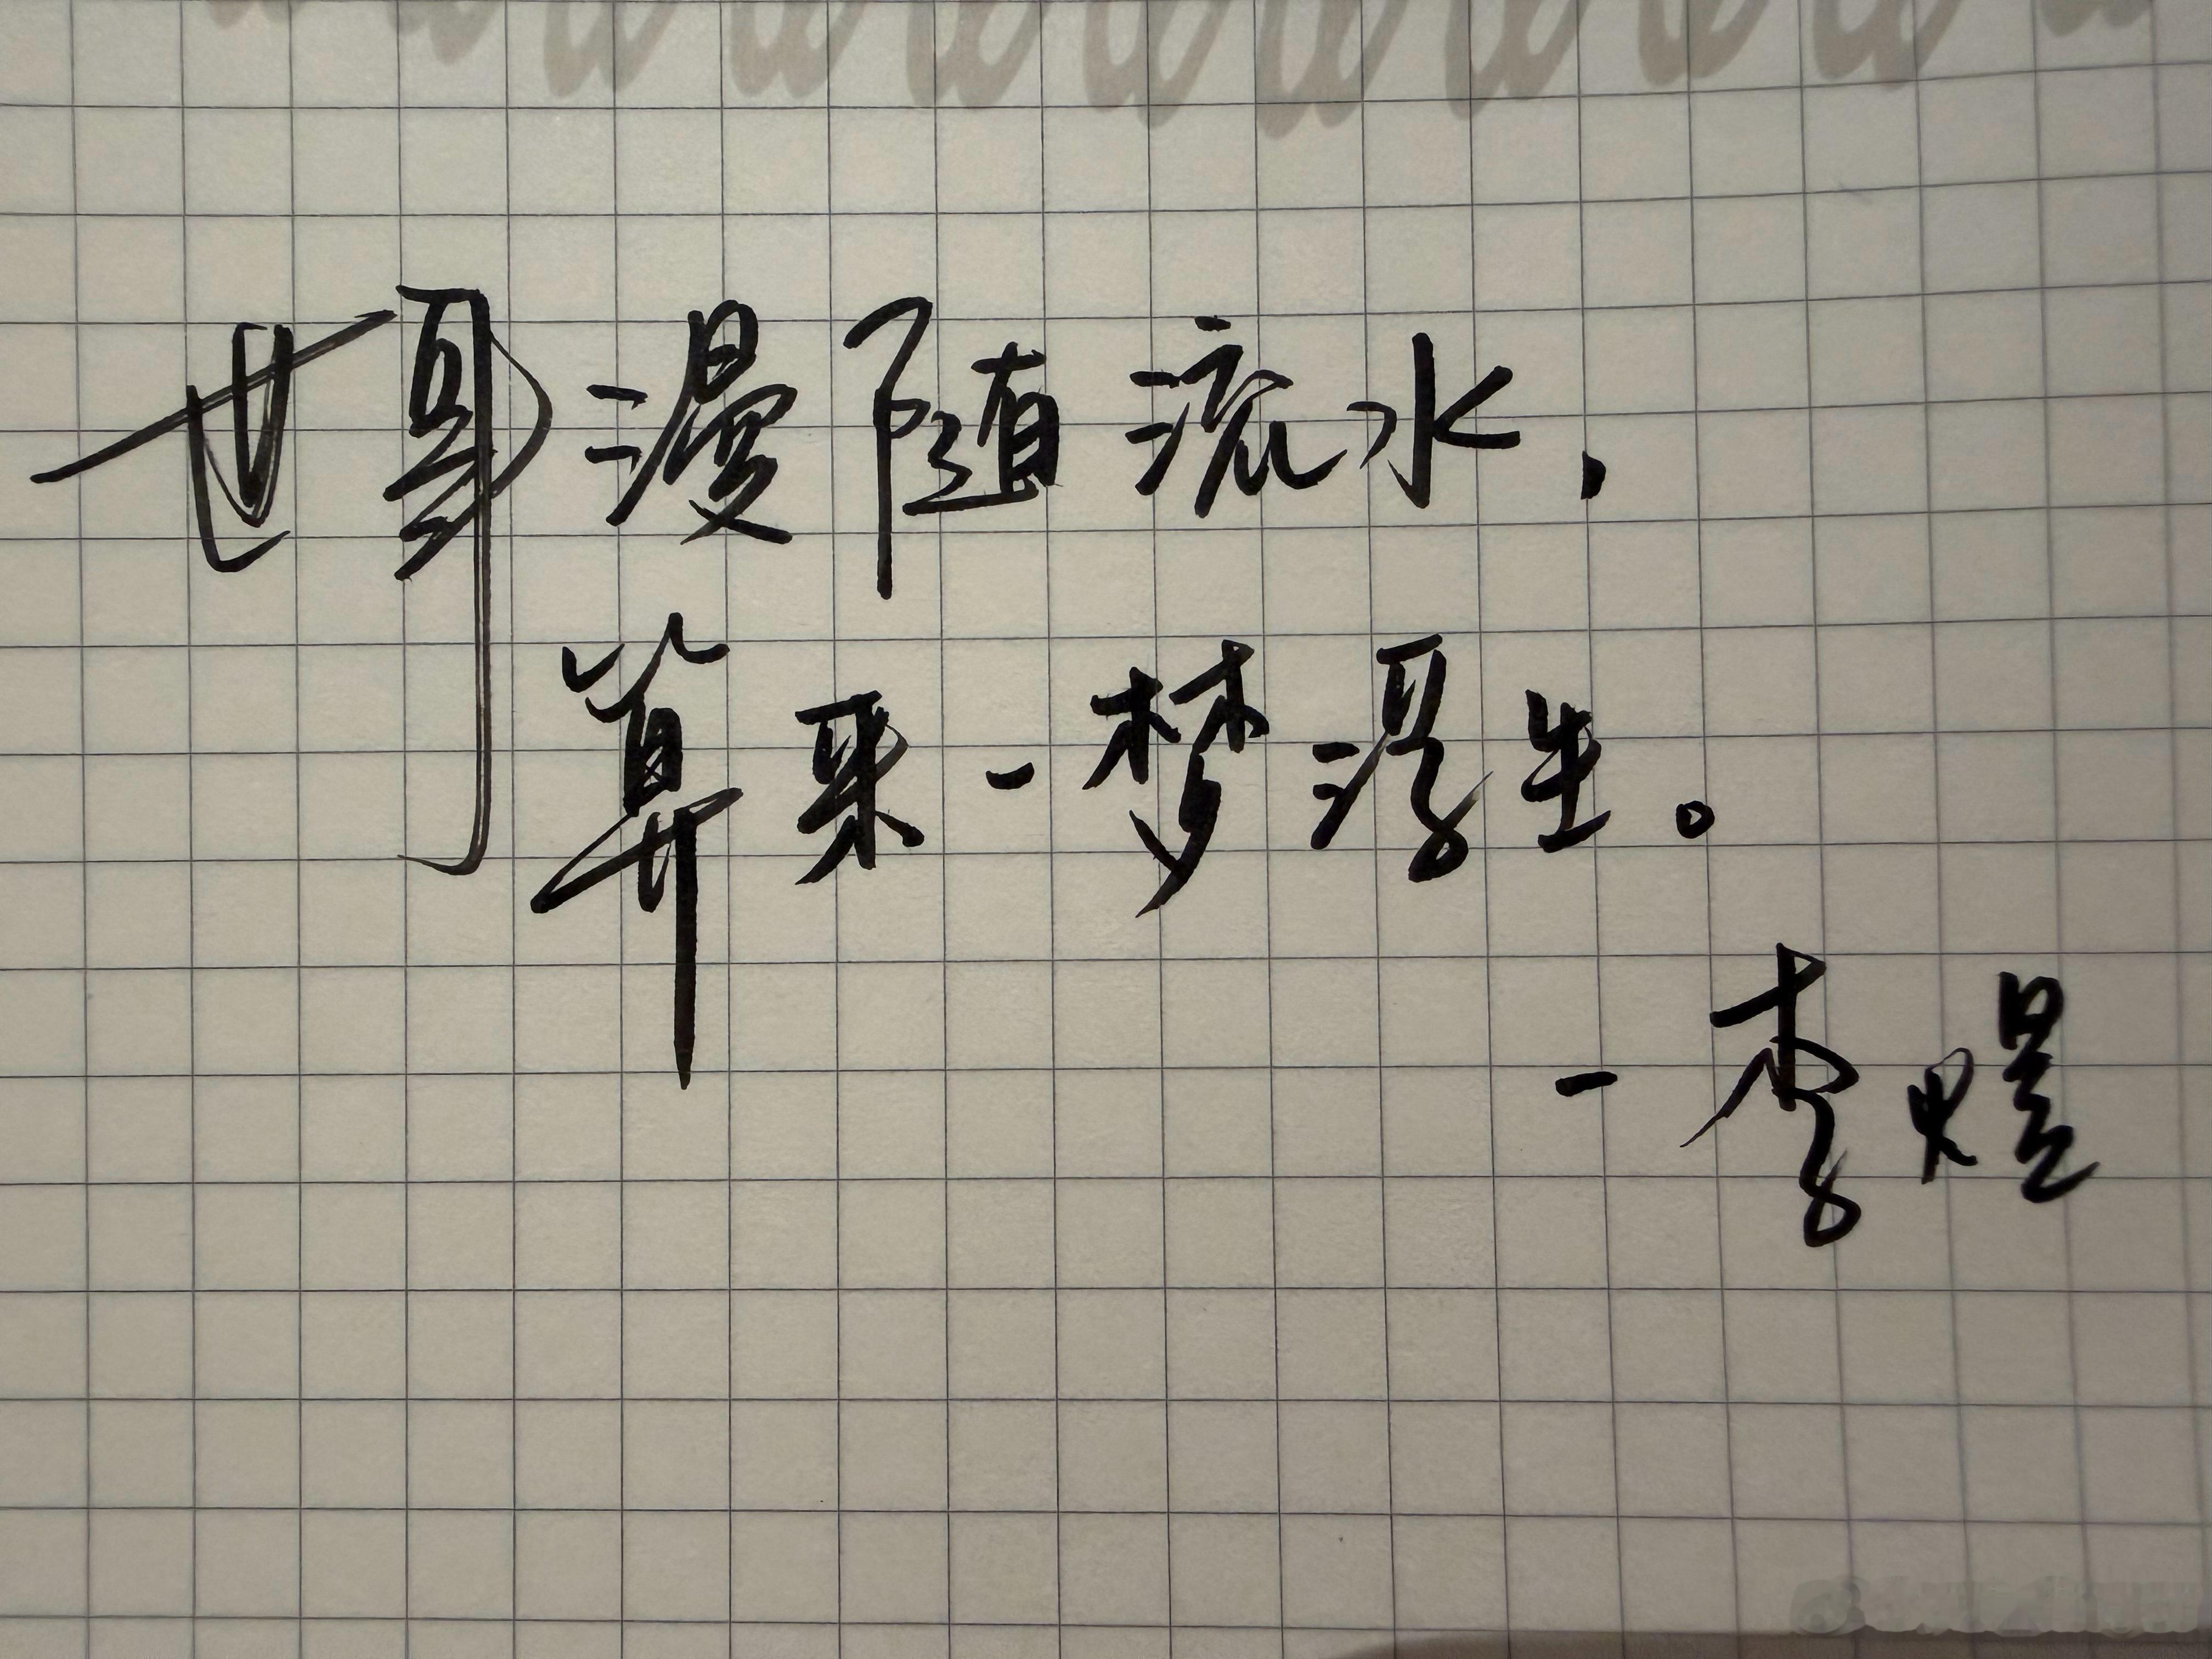 世事漫随流水,
算来一梦浮生。
-李煜